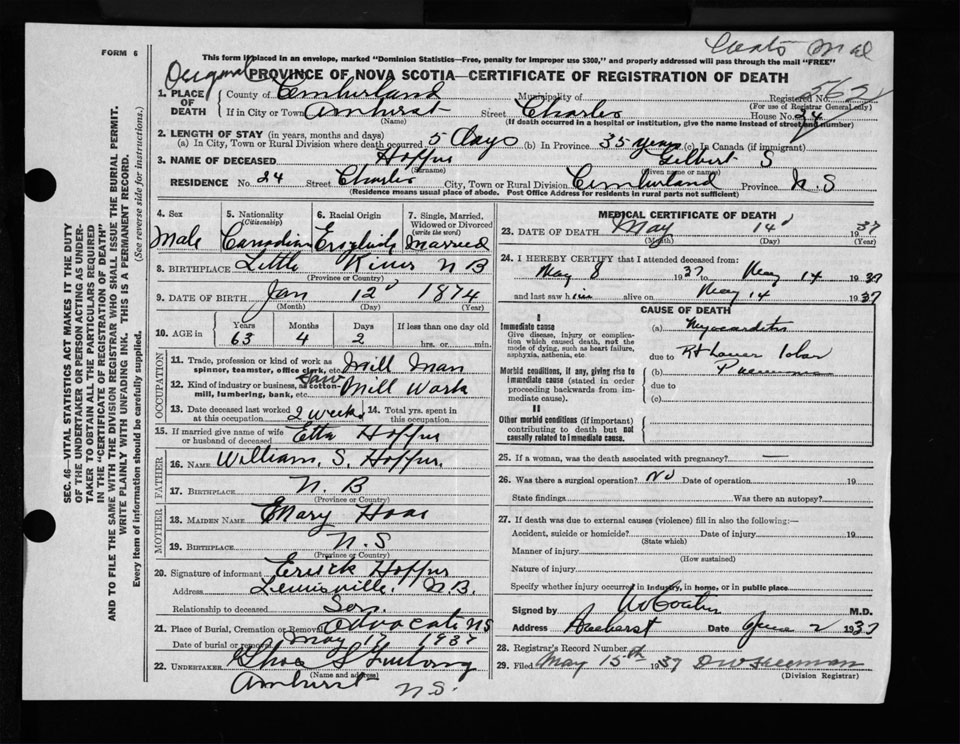 FORM 6
This form if placed in an envelope, marked "Dominion Statistics—Free, penalty for improper use $300," and properly addressed will pass through the mail "FREE"
PROVINCE OF NOVA SCOTIA—CERTIFICATE OF REGISTRATION OF DEATH
1. PLACE OF DEATH
County of Cumberland Municipality of Registered No.
(For use of Registrar General only)
If in City or Town Amherst Street Charles House No. 24
(Name) (If death occurred in a hospital or institution, give the name instead of street and number)
2. LENGTH OF STAY (in years, months and days)
(a) In City, Town or Rural Division where death occurred 5 days (b) In Province 35 years (c) In Canada (if immigrant)
3. NAME OF DECEASED Hoffus Gilbert S
(Surname) (Given name or names)
RESIDENCE No. 24 Street Charles City, Town or Rural Division Cumberland Province N.S
(Residence means usual place of abode. Post Office Address for residents in rural parts not sufficient)
4. Sex Male
5. Nationality (Citizenship) Canadian
6. Racial Origin English
7. Single, Married, Widowed or Divorced (write the word) Married
8. BIRTHPLACE Little River N B
(Province or Country)
9. DATE OF BIRTH Jan 12 1874
(Month) (Day) (Year)
10. AGE in Years Months Days If less than one day old
63 4 2 hrs. or min.
OCCUPATION
11. Trade, profession or kind of work as spinner, teamster, office clerk, etc. Mill Man
12. Kind of industry or business, as cotton-mill, lumbering, bank, etc. Saw Mill Work
13. Date deceased last worked at this occupation 2 weeks 14. Total yrs. spent in this occupation
15. If married give name of wife or husband of deceased Etta Hoffus
FATHER
16. NAME William. S. Hoffus.
17. BIRTHPLACE N. B
(Province or Country)
MOTHER
18. MAIDEN NAME Mary
19. BIRTHPLACE N.S
(Province or Country)
20. Signature of informant Hoffus
Address Lewisville. N.B.
Relationship to deceased Son.
21. Place of Burial, Cremation or Removal Advocate NS
Date of burial or removal May 17 1937
22. UNDERTAKER
(Name and address)
Amherst N.S.
MEDICAL CERTIFICATE OF DEATH
23. DATE OF DEATH May 14 1937
(Month) (Day) (Year)
24. I HEREBY CERTIFY that I attended deceased from:
May 8 1937 to May 14 1937
and last saw him alive on May 14 1937
CAUSE OF DEATH
I
Immediate cause
Give disease, injury or complication which caused death, not the mode of dying, such as heart failure, asphyxia, asthenia, etc.
(a) Myocarditis
due to Rt Lower lobar
Morbid conditions, if any, giving rise to immediate cause (stated in order proceeding backwards from immediate cause).
(b) Pneumonia
due to
(c)
II
Other morbid conditions (if important) contributing to death but not causally related to immediate cause.
25. If a woman, was the death associated with pregnancy? —
26. Was there a surgical operation? No Date of operation 19
State findings Was there an autopsy?
27. If death was due to external causes (violence) fill in also the following:—
Accident, suicide or homicide? Date of injury 19
(State which)
Manner of injury
(How sustained)
Nature of injury
Specify whether injury occurred in industry, in home, or in public place
Signed by M.D.
Address Amherst Date June 2 1937
28. Registrar's Record Number
29. Filed May 15th 1937
(Division Registrar)
SEC. 46—VITAL STATISTICS ACT MAKES IT THE DUTY
OF THE UNDERTAKER OR PERSON ACTING AS UNDER-
TAKER TO OBTAIN ALL THE PARTICULARS REQUIRED
IN THE "CERTIFICATE OF REGISTRATION OF DEATH"
AND TO FILE THE SAME WITH THE DIVISION REGISTRAR WHO SHALL ISSUE THE BURIAL PERMIT.
WRITE PLAINLY WITH UNFADING INK. THIS IS A PERMANENT RECORD.
Every item of information should be carefully supplied. (See reverse side for instructions.)